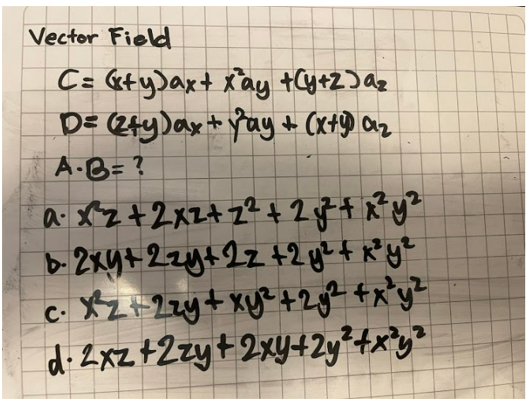 Vector Field
C= (x+y)ax+ x²ay +(y+z)az
D= (z+y)ax+ y²ay + (x+y) az
A·B= ?
a. x²z + 2xz + z² + 2y² + x²y²
b. 2xy + 2zy + 2z + 2y² + x²y²
c. x²z + 2zy + xy² + 2y² + x²y²
d. 2xz + 2zy + 2xy + 2y² + x²y²